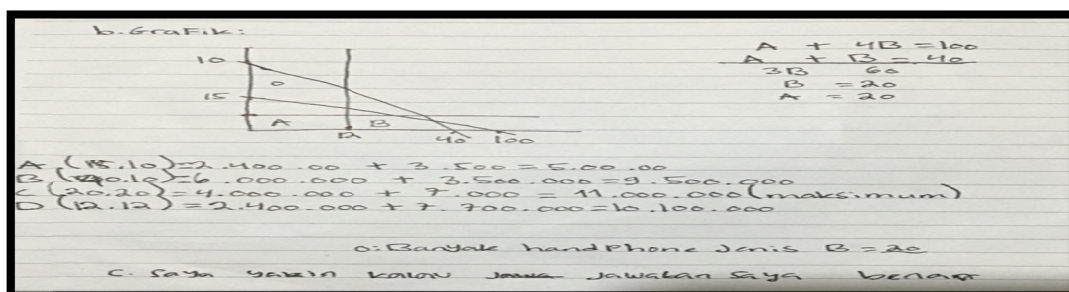 b. Grafik:
A + 4B = 100
A + B = 40
3B 60
B = 20
A = 20
10
0
15
A
B
12
40 100
A (15.10)=2.400.00 + 3.500 = 5.00.00
B (40.10)=6.000.000 + 3.500.000 = 9.500.000
C (20.20)=4.000.000 + 7.000 = 11.000.000 (maksimum)
D (12.12)=2.400.000 + 7.700.000=10.100.000
o: Banyak handphone Jenis B = 20
C. Saya yakin kalau Jawa Jawaban saya benar